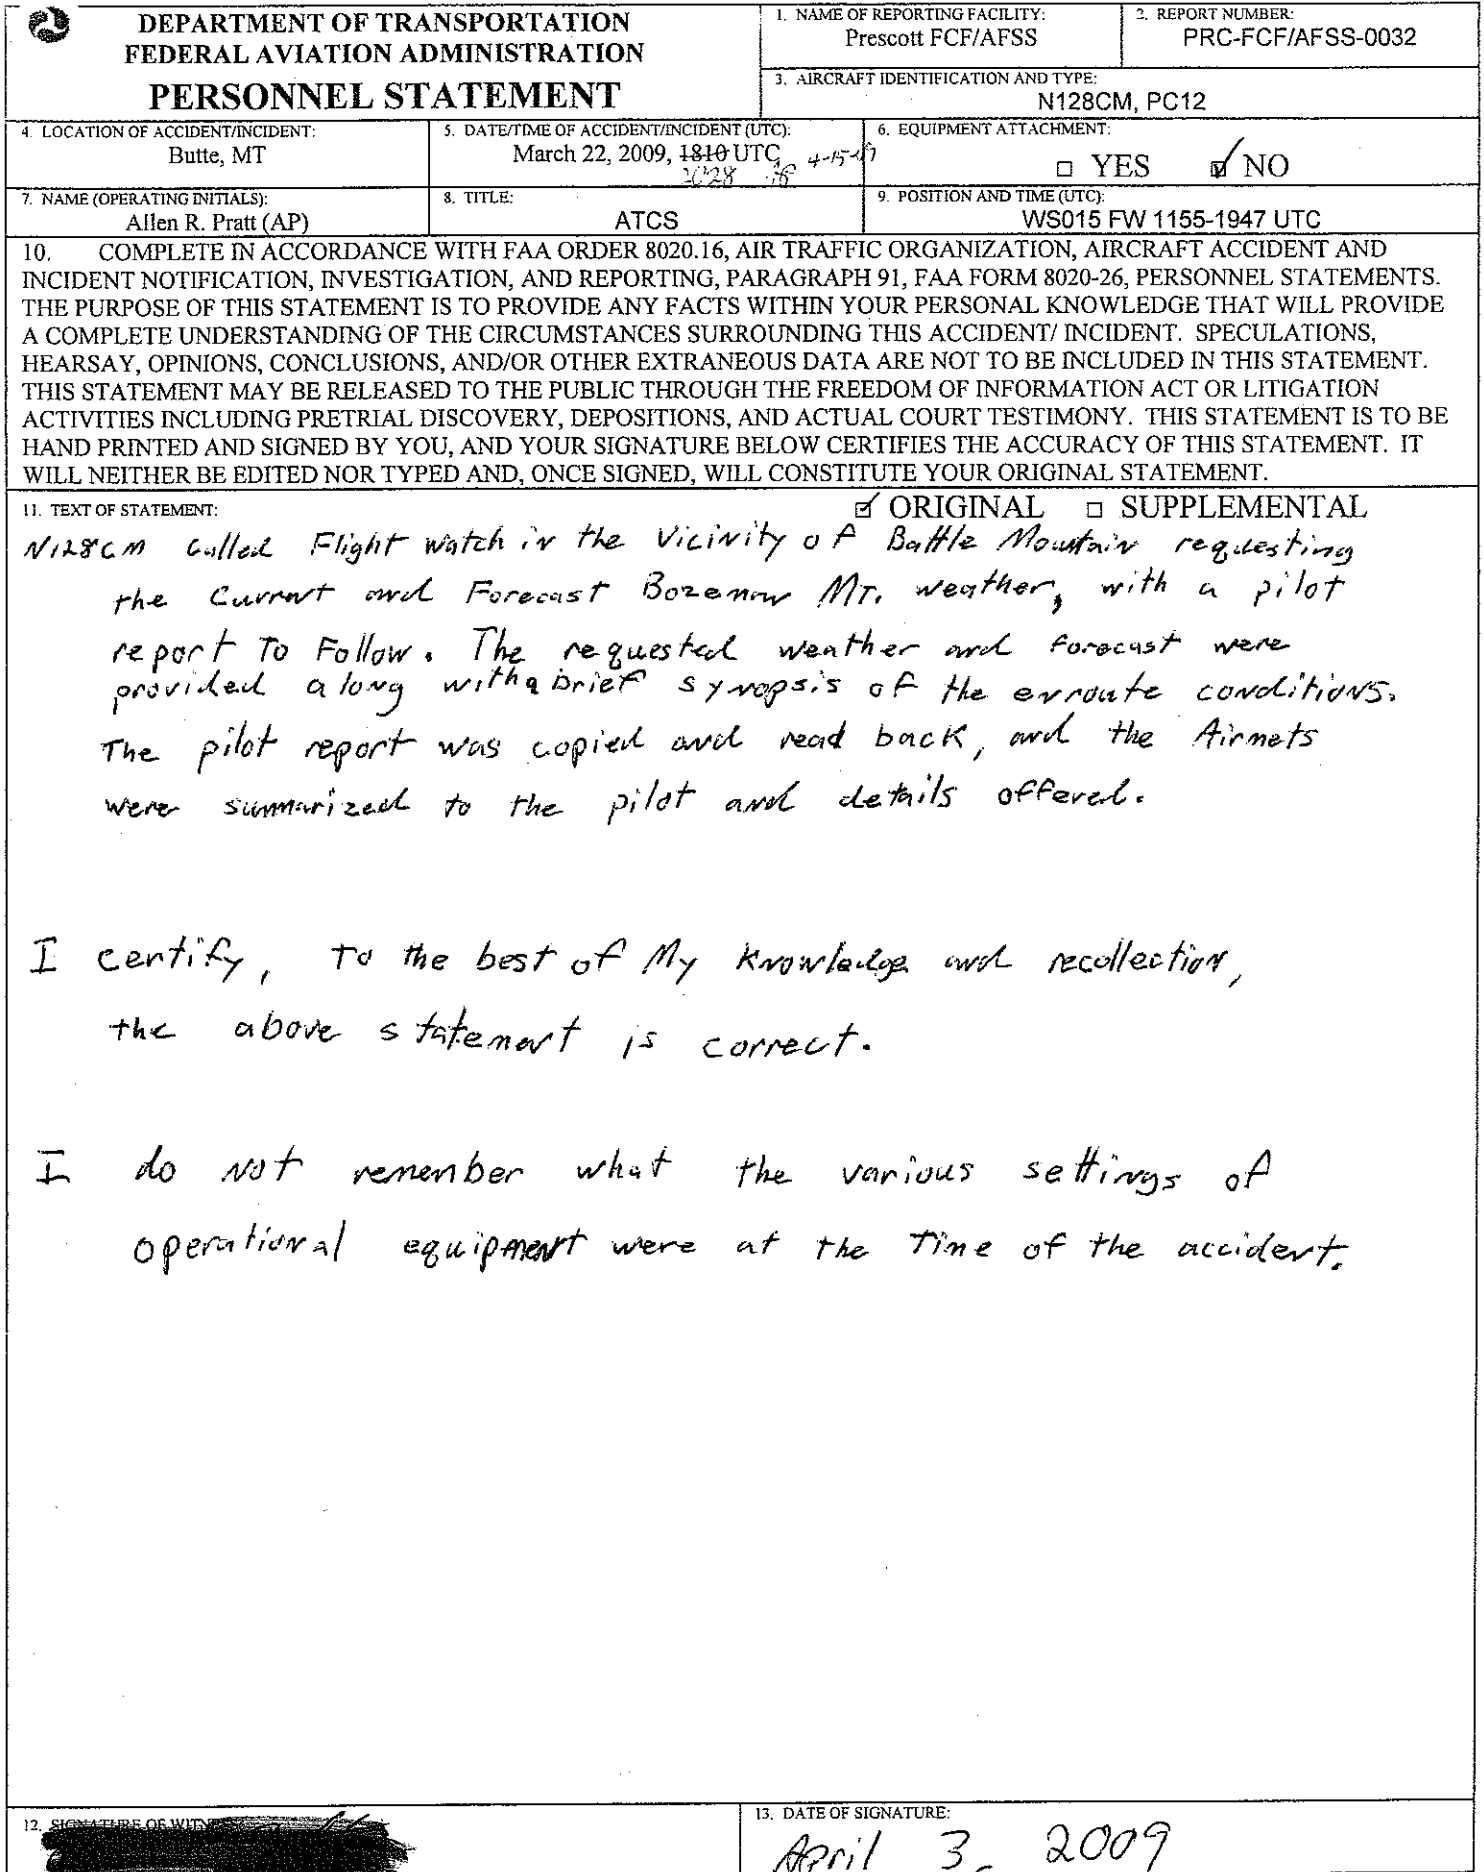 DEPARTMENT OF TRANSPORTATION
FEDERAL AVIATION ADMINISTRATION
PERSONNEL STATEMENT
1. NAME OF REPORTING FACILITY:
Prescott FCF/AFSS
2. REPORT NUMBER:
PRC-FCF/AFSS-0032
3. AIRCRAFT IDENTIFICATION AND TYPE:
N128CM, PC12
4. LOCATION OF ACCIDENT/INCIDENT:
Butte, MT
5. DATE/TIME OF ACCIDENT/INCIDENT (UTC):
March 22, 2009, 1810 UTC
2028
6. EQUIPMENT ATTACHMENT:
YES NO
7. NAME (OPERATING INITIALS):
Allen R. Pratt (AP)
8. TITLE:
ATCS
9. POSITION AND TIME (UTC):
WS015 FW 1155-1947 UTC
10. COMPLETE IN ACCORDANCE WITH FAA ORDER 8020.16, AIR TRAFFIC ORGANIZATION, AIRCRAFT ACCIDENT AND
INCIDENT NOTIFICATION, INVESTIGATION, AND REPORTING, PARAGRAPH 91, FAA FORM 8020-26, PERSONNEL STATEMENTS.
THE PURPOSE OF THIS STATEMENT IS TO PROVIDE ANY FACTS WITHIN YOUR PERSONAL KNOWLEDGE THAT WILL PROVIDE
A COMPLETE UNDERSTANDING OF THE CIRCUMSTANCES SURROUNDING THIS ACCIDENT/ INCIDENT. SPECULATIONS,
HEARSAY, OPINIONS, CONCLUSIONS, AND/OR OTHER EXTRANEOUS DATA ARE NOT TO BE INCLUDED IN THIS STATEMENT.
THIS STATEMENT MAY BE RELEASED TO THE PUBLIC THROUGH THE FREEDOM OF INFORMATION ACT OR LITIGATION
ACTIVITIES INCLUDING PRETRIAL DISCOVERY, DEPOSITIONS, AND ACTUAL COURT TESTIMONY. THIS STATEMENT IS TO BE
HAND PRINTED AND SIGNED BY YOU, AND YOUR SIGNATURE BELOW CERTIFIES THE ACCURACY OF THIS STATEMENT. IT
WILL NEITHER BE EDITED NOR TYPED AND, ONCE SIGNED, WILL CONSTITUTE YOUR ORIGINAL STATEMENT.
11. TEXT OF STATEMENT:
ORIGINAL SUPPLEMENTAL
N128CM Called Flight watch in the Vicinity of Battle Mountain requesting
the Current and Forecast Bozeman MT. weather, with a pilot
report To Follow. The requested weather and forecast were
provided along with a brief synopsis of the enroute conditions.
The pilot report was copied and read back, and the Airmets
were summarized to the pilot and details offered.
I certify, To the best of My Knowledge and recollection,
the above statement is correct.
I do not remember what the various settings of
operational equipment were at the Time of the accident.
12. SIGNATURE OF WITNESS
13. DATE OF SIGNATURE:
April 3, 2009